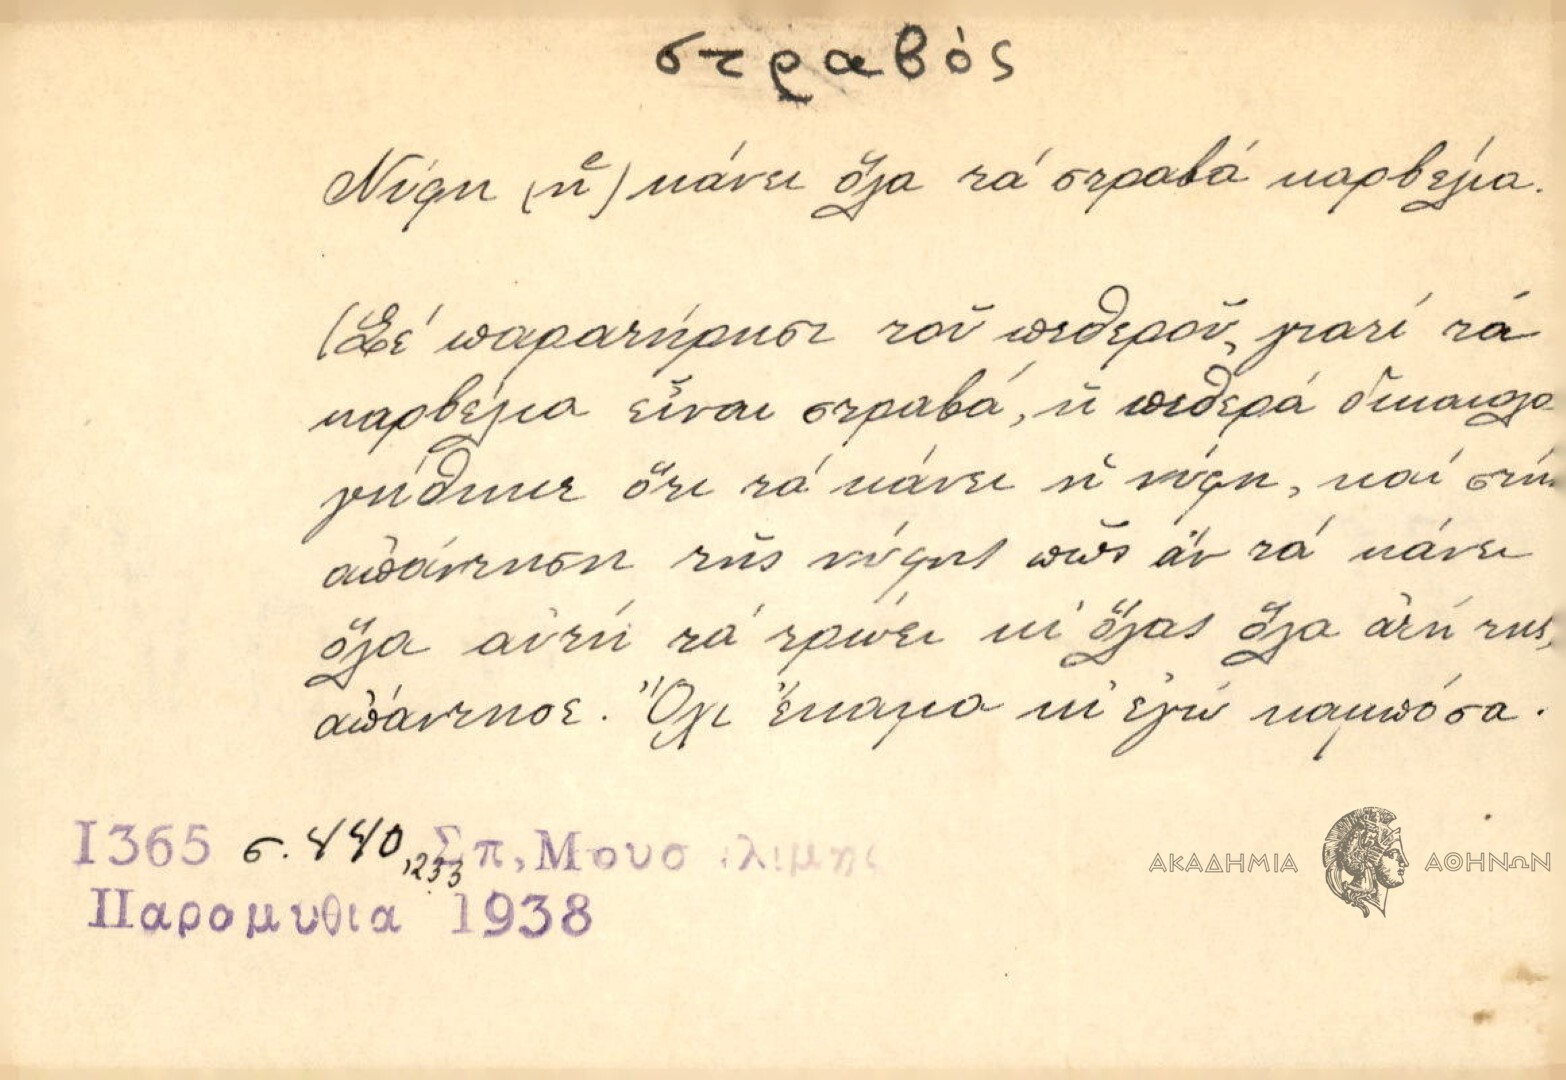 στραβὸς
Νύφη (ἡ) κάνει ὅλα τά στραβά καρβέλια.
(Σέ παρατήρησι τοῦ πεθεροῦ, γιατί τά
καρβέλια εἶναι στραβά, ἡ πεθερά δικαιολο
γήθηκε ὅτι τά κάνει ἡ νύφη, καί στήν
ἀπάντηση τῆς νύφης πῶς ἄν τά κάνει
ὅλα αὐτή τά τρώει κι' ὅλας ὅλα ἀτή της,
ἀπάντησε. Ὄχι ἔκαμα κι' ἐγώ καμπόσα.
Ι365 σ. 440, 1233 Σπ, Μουσ λιμης
Παρομυθια 1938
ΑΚΑΔΗΜΙΑ ΑΘΗΝΩΝ